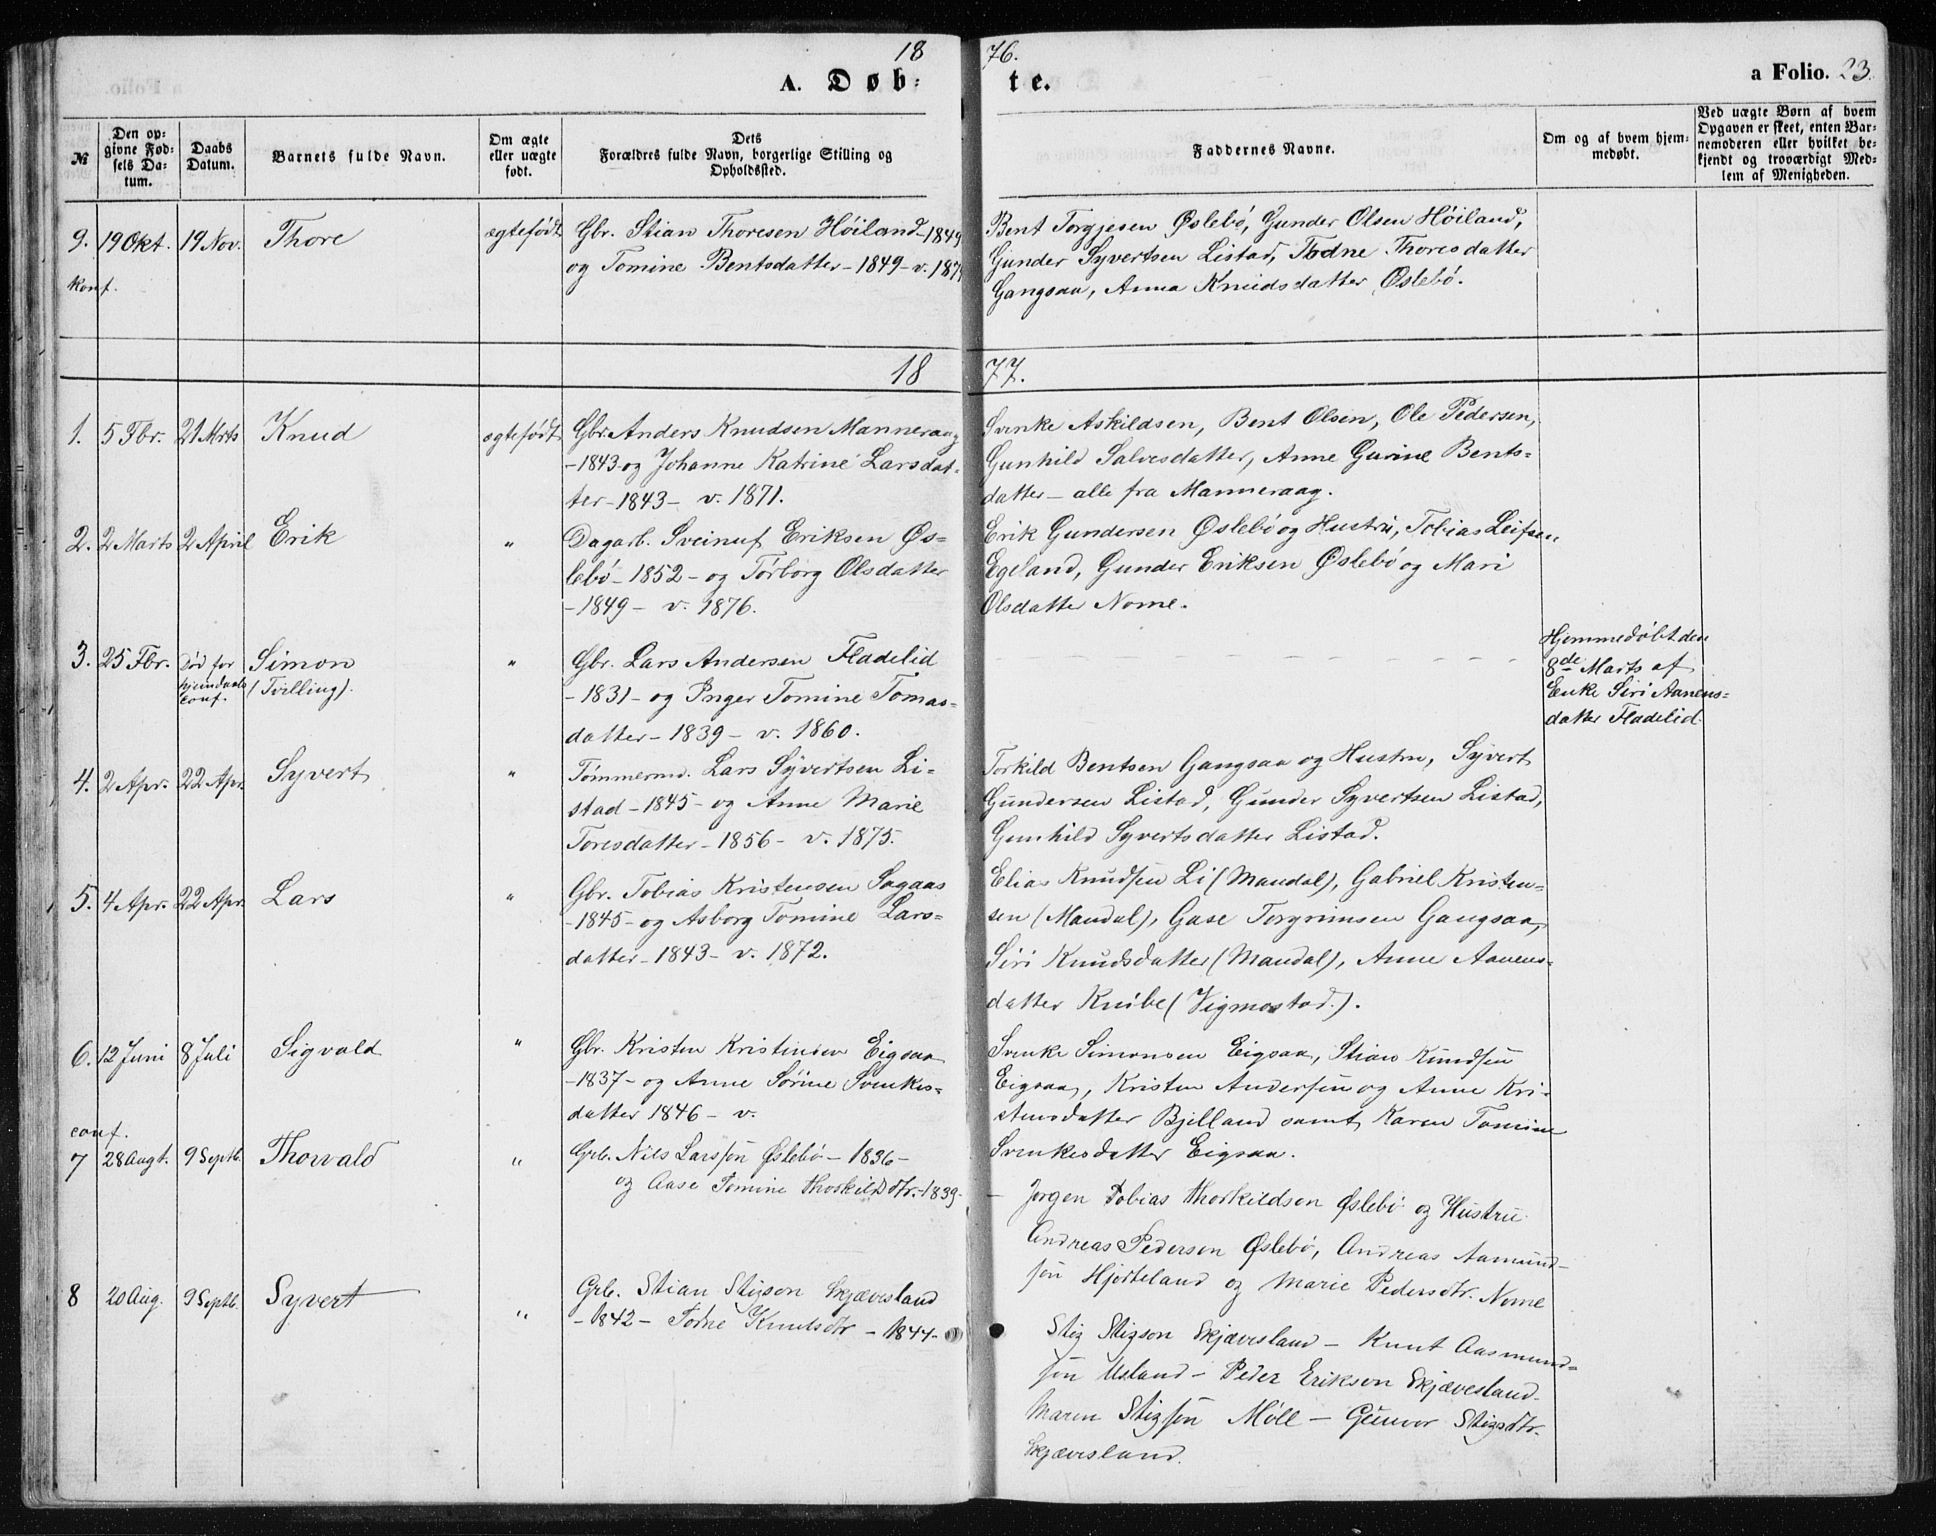 18 76.
A. Døb: te.
a Folio. 23.
№
Den opgivne Fødsels Datum.
Daabs Datum.
Barnets fulde Navn.
Om ægte eller uægte født.
Dets Forældres fulde Navn, borgerlige Stilling og Opholdssted.
Faddernes Navne.
Om og af hvem hjemmedøbt.
Ved uægte Børn af hvem Opgaven er skeet, enten Barnemoderen eller hvilket bekjendt og troværdigt Medlem af Menigheden.
9. 19 Okt. 19 Nov. Thore ægtefødt
konf.
Gbr. Stian Thoresen Höiland - 1849
og Tomine Bentsdatter - 1849 - v. 187
Bent Torgjesen Øslebö, Gunder Olsen Höiland,
Gunder Syvertsen Listad, Todne Thoresdatter
Gangsaa, Anna Knudsdatter Øslebö.
18 77.
1. 5 Fbr. 21 Mrts Knud ægtefødt
Gbr. Anders Knudsen Manneraag
- 1843 og Johanne Katrine Larsdat-
ter - 1843 - v. 1871.
Svenke Askildsen, Bent Olsen, Ole Pedersen,
Gunhild Salvesdatter, Anne Gurine Bents-
datter - alle fra Manneraag.
2. 2 Marts 2 April Erik "
Dagarb. Sveinuf Eriksen Øs-
lebö - 1852 - og Torborg Olsdatter
- 1849 - v. 1876.
Erik Gundersen Øslebö og Hustru, Tobias Leifsen
Egeland, Gunder Eriksen Øslebö og Mari
Olsdatter Nome.
3. 25 Fbr. Död for hjemdaabs conf. Simon "
(Tvilling).
Gbr. Lars Andersen Fladelid
- 1831 - og Inger Tomine Tomas-
datter - 1839 - v. 1860.
Hjemmedöbt den
8de Marts af
Enke Siri Aanens-
datter Fladelid.
4. 2 Apr. 22 Apr. Syvert "
Tömmermd. Lars Syvertsen Li-
stad - 1845 - og Anne Marie
Toresdatter - 1856 - v. 1875.
Torkild Bentsen Gangsaa og Hustru, Syvert
Gundersen Listad, Gunder Syvertsen Listad,
Gunhild Syvertsdatter Listad.
5. 4 Apr. 22 Apr. Lars "
Gbr. Tobias Kristensen Sagaas
- 1845 - og Asborg Tomine Lars-
datter - 1843 - v. 1872.
Elias Knudsen Li (Mandal), Gabriel Kristen-
sen (Mandal), Gase Torgrimsen Gangsaa,
Siri Knudsdatter (Mandal), Anne Aanens-
datter Knibe (Vigmostad.).
6. 12 Juni 8 Juli Sigvald "
Gbr. Kristen Kristensen Eigsaa
- 1837 - og Anne Sörine Svenkes-
datter 1846 - v.
Svenke Simonsen Eigsaa, Stian Knudsen
Eigsaa, Kristen Andersen og Anne Kri-
stensdatter Bjelland samt Karen Tomine
Svenkesdatter Eigsaa.
conf.
7 28 Augt. 9 Septb. Thorvald "
Grb. Nils Larsson Øslebö - 1836 -
og Aase Tomine Thorkildsdtr. - 1839 -
- Jørgen Tobias Thorkildson Øslebö og Hustru
Andreas Pederson Øslebö, Andreas Aamund-
son Hjorteland og Marie Pedersdtr. Nome
8 20 Aug. 9 Septb. Syvert "
Grb. Stian Stigson Skjævesland
- 1842 - Todne Knutsdtr - 1844 -
Stig Stigson Skjævesland - Knut Aasmund-
son Usland - Peder Erikson Skjævesland -
Maren Stigson Möll - Gunvor Stigsdtr.
Skjævesland.